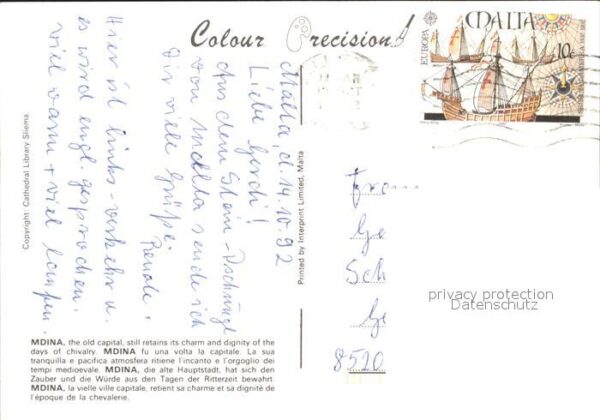 Colour Precision
MALTA
EUROPA
10c
Malta, d. 14.10.92
Liebe Gerdi!
Aus dem Stein-Dschungel
von Malta sende ich
Dir viele Grüße.
Renate.
Hier ist links-verkehr u.
es wird engl. gesprochen.
viel warm + viel laufen.
Copyright: Cathedral Library Sliema.
Printed by Interprint Limited, Malta
Fra
Ge
Sch
Ge
8520
privacy protection
Datenschutz
MDINA, the old capital, still retains its charm and dignity of the
days of chivalry. MDINA fu una volta la capitale. La sua
tranquilla e pacifica atmosfera ritiene l'incanto e l'orgoglio dei
tempi medioevale. MDINA, die alte Hauptstadt, hat sich den
Zauber und die Würde aus den Tagen der Ritterzeit bewahrt.
MDINA, la vielle ville capitale, retient sa charme et sa dignité de
l'époque de la chevalerie.